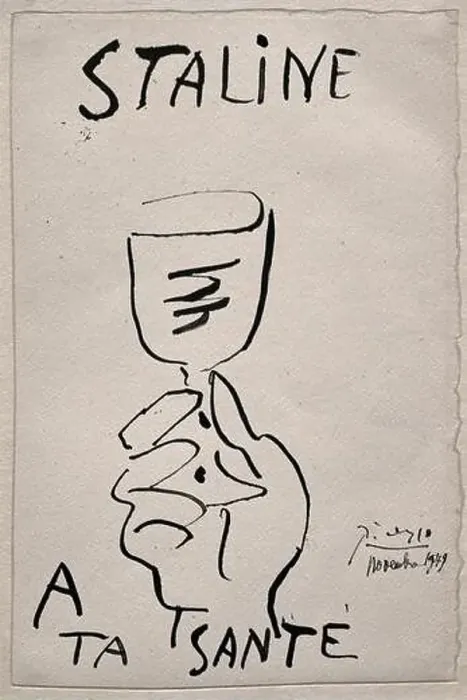 STALiNE
Picasso
Novembre 1949
A
TA SANTÉ